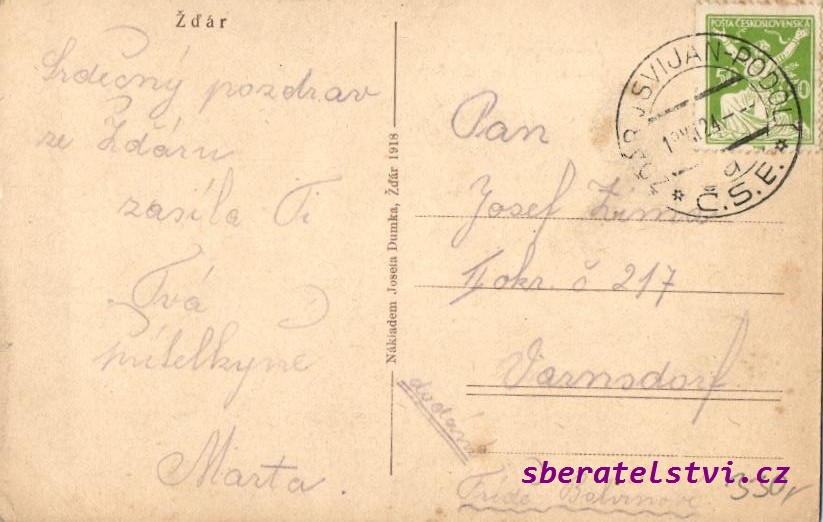 Žďár
Srdečný pozdrav
ze Žďáru
zasílá Ti
Tvá
přítelkyně
Marta.
Nákladem Josefa Dumka, Žďár 1918
POŠTA ČESKOSLOVENSKÁ
SVIJAN-PODOLÍ
Č.S.E.
Pan
Josef
II okr. č 217
Varnsdorf
dodání
sberatelstvi.cz
330,-